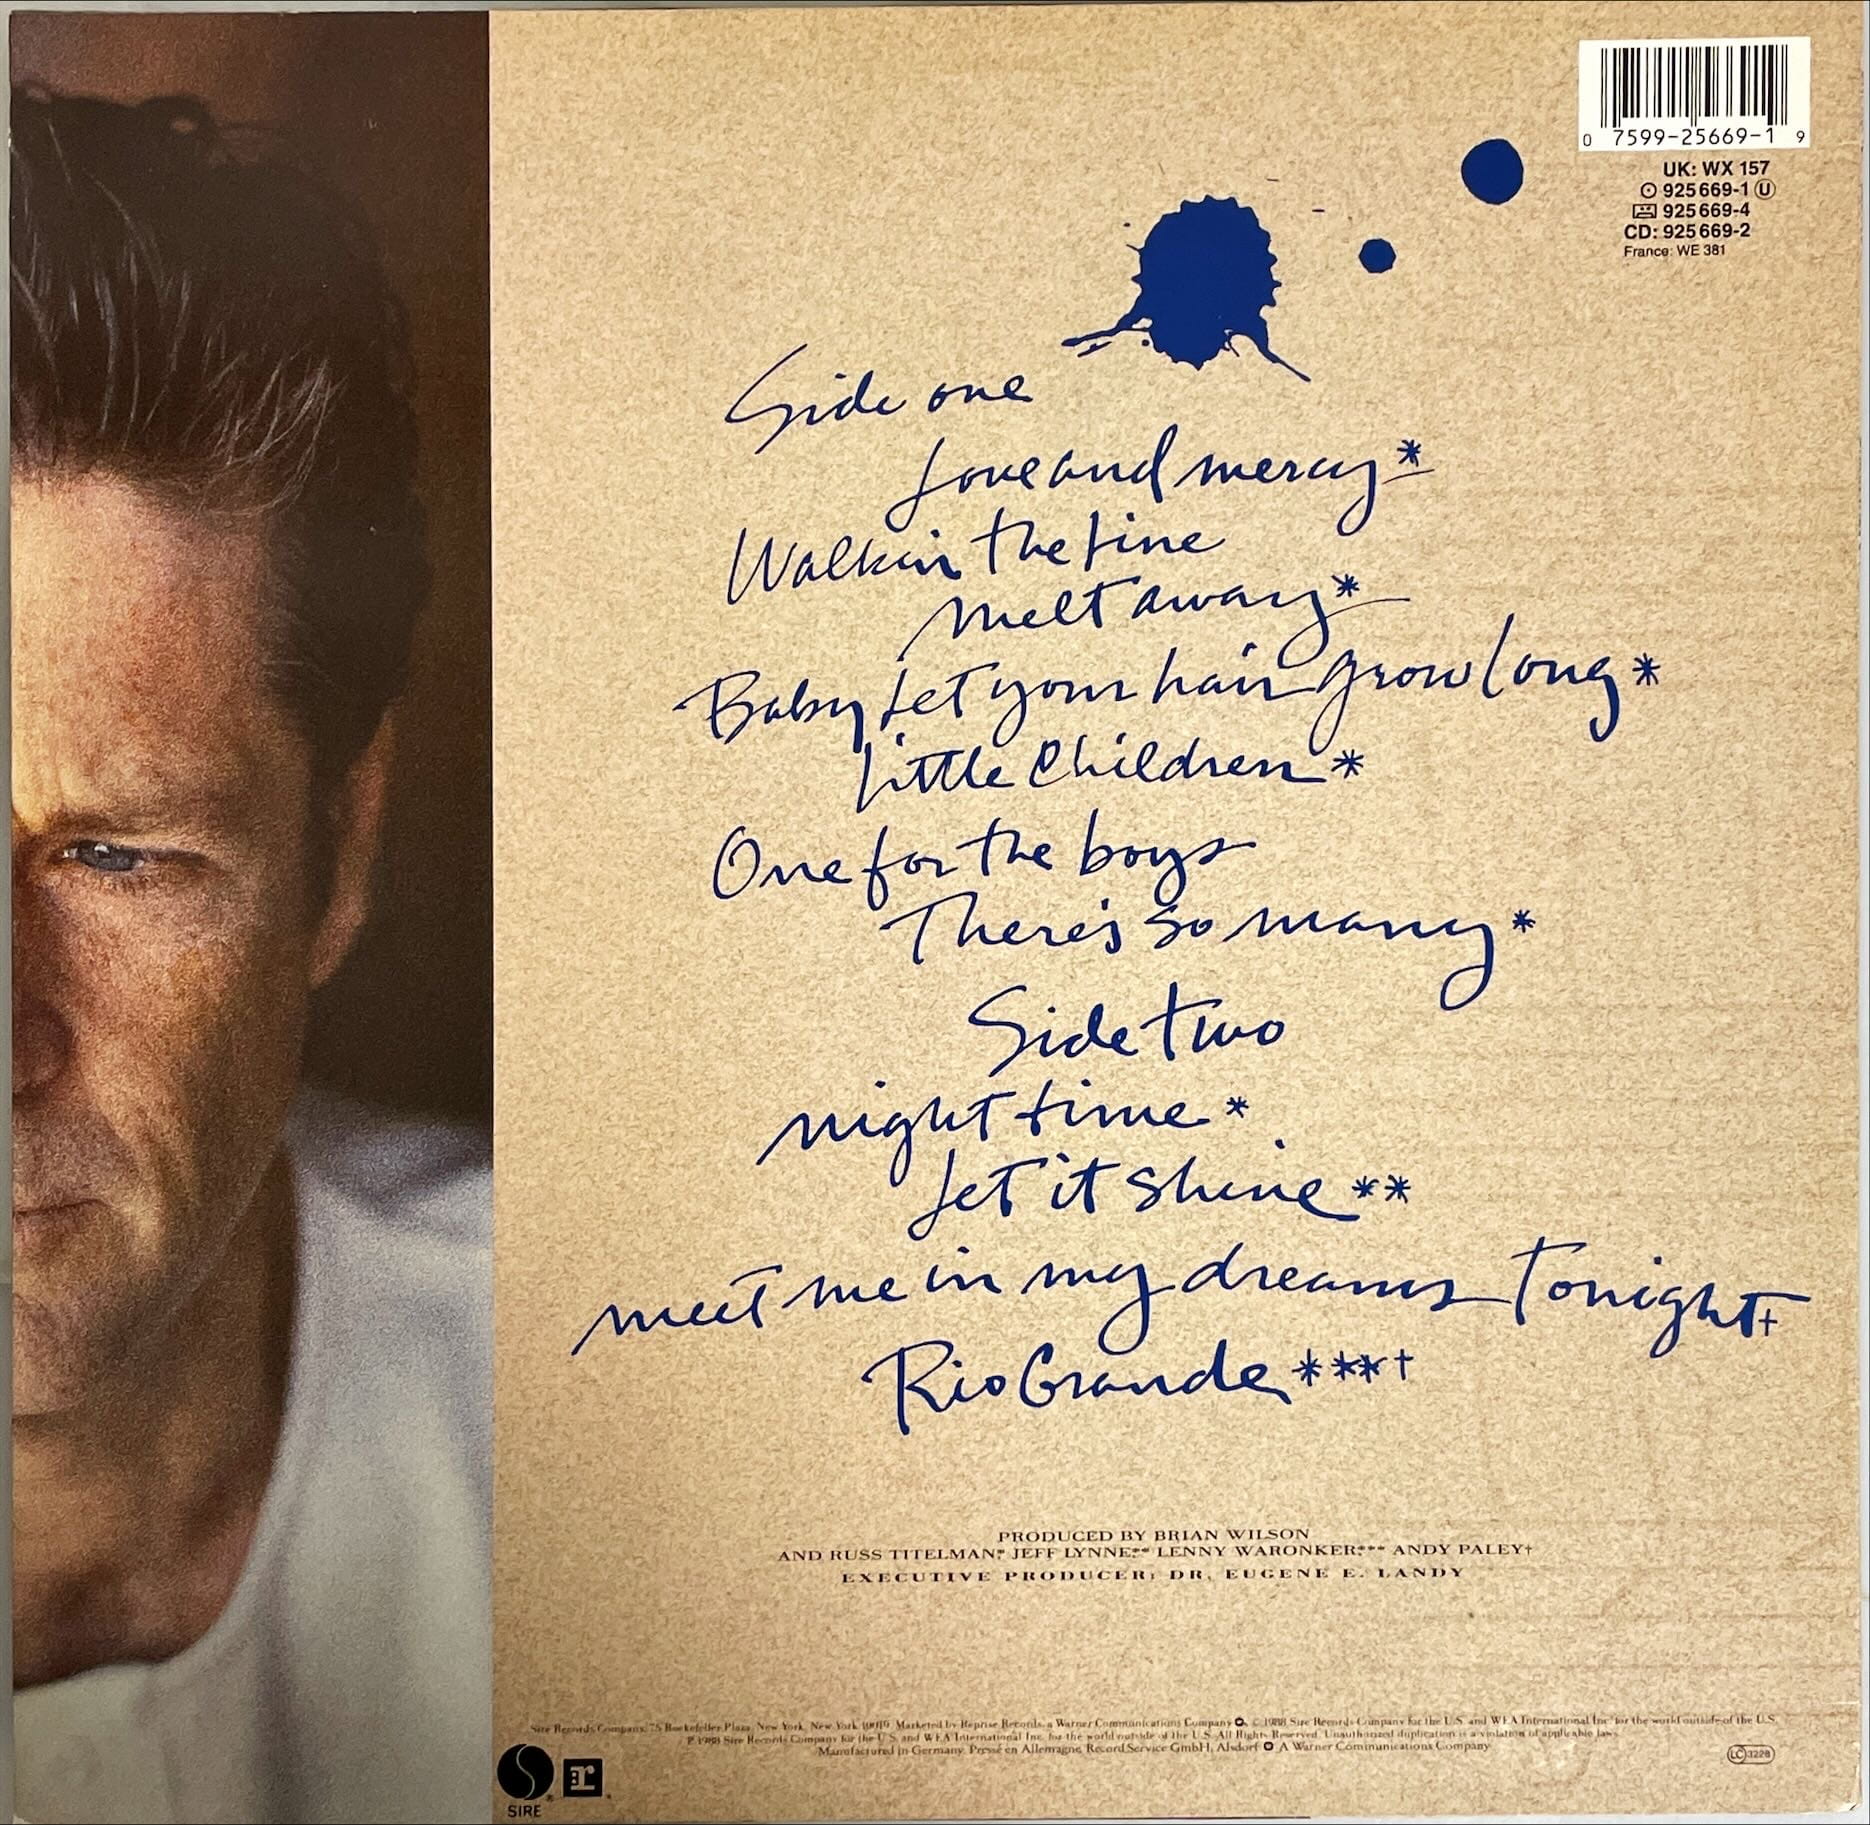 0 7599-25669-1 9
UK: WX 157
925 669-1 U
925 669-4
CD: 925 669-2
France: WE 381
Side one
Love and mercy*
Walkin the line
Melt away*
Baby Let your hair grow long*
Little Children*
One for the boys
There's so many*
Side two
night time*
Let it shine**
meet me in my dreams Tonight†
Rio Grande***†
PRODUCED BY BRIAN WILSON
AND RUSS TITELMAN* JEFF LYNNE** LENNY WARONKER*** ANDY PALEY†
EXECUTIVE PRODUCER: DR. EUGENE E. LANDY
Sire Records Company, 75 Rockefeller Plaza, New York, New York 10019. Marketed by Reprise Records, a Warner Communications Company © 1988 Sire Records Company for the U.S. and WEA International Inc. for the world outside of the U.S.
℗ 1988 Sire Records Company for the U.S. and WEA International Inc. for the world outside of the U.S. All Rights Reserved. Unauthorized duplication is a violation of applicable laws.
Manufactured in Germany. Pressé en Allemagne. Record Service GmbH, Alsdorf A Warner Communications Company
LC 3228
r
SIRE